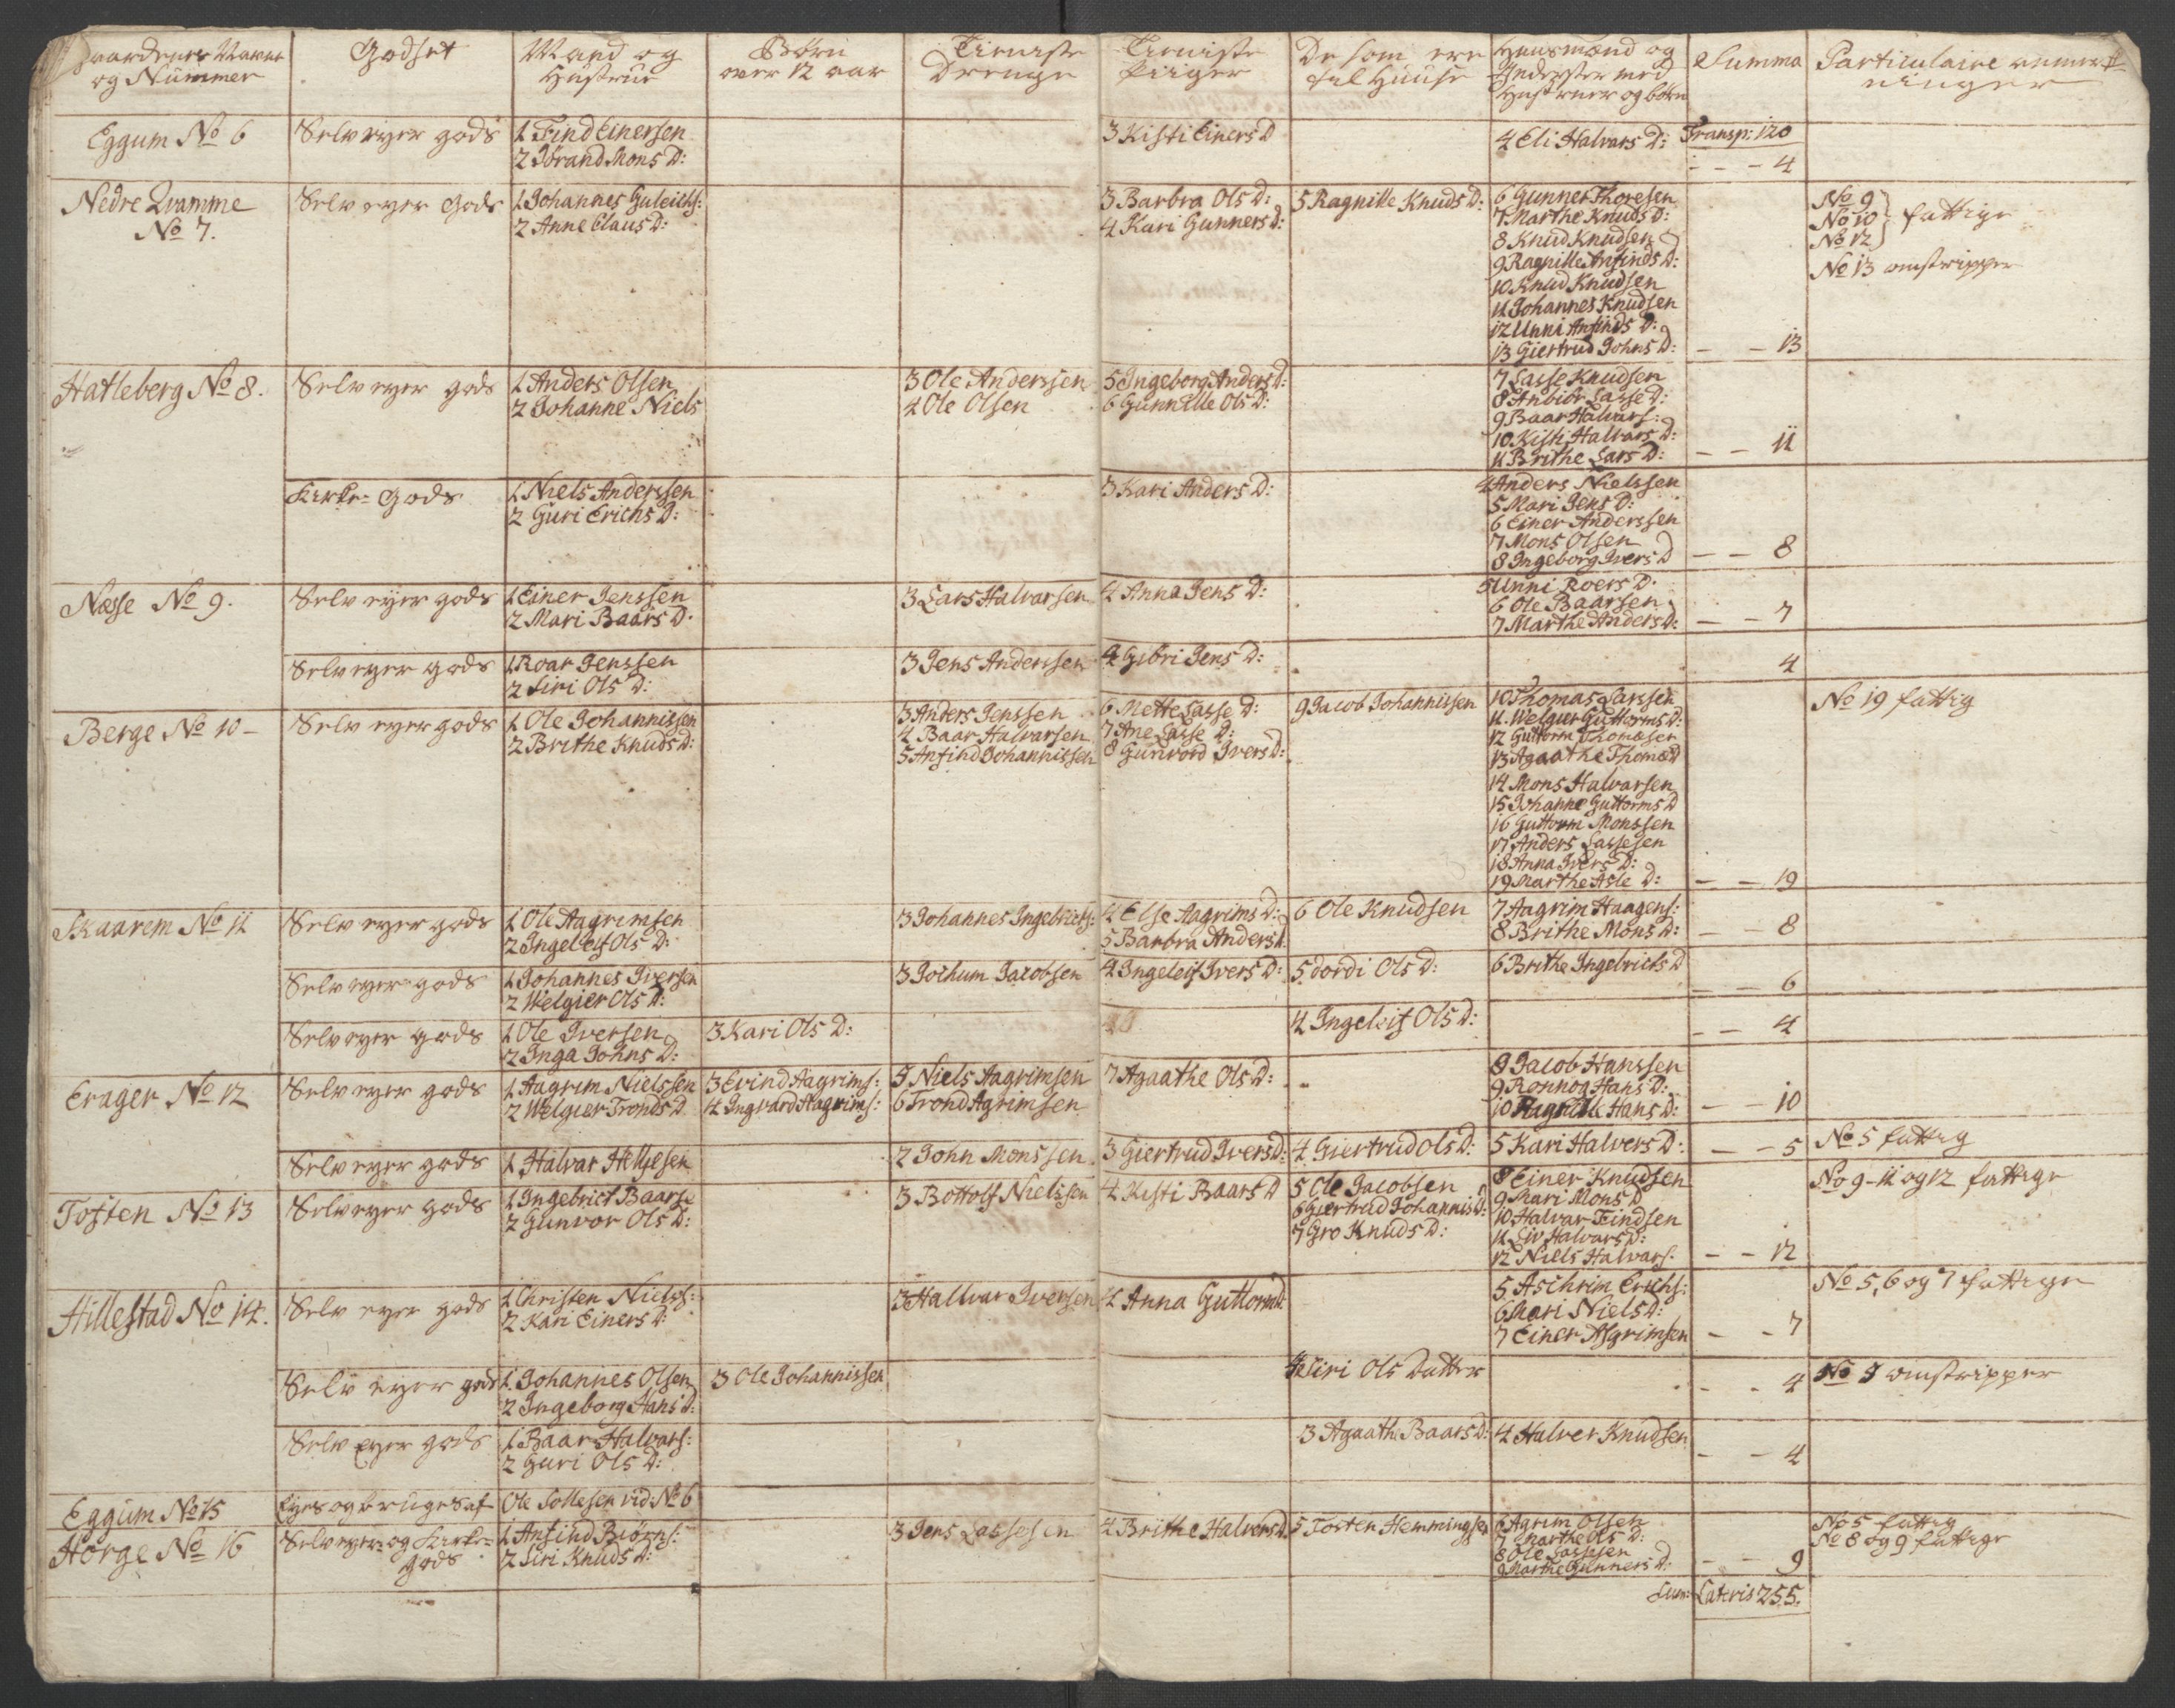 Gaardenes Navne og Nummer
Godset
Mand og Hustrue
Børn over 12 aar
Tieniste Drenge
Tieniste Piiger
De som ere til Huuse
Huusmænd og Inderster med Hustruer og børn
Summa
Particulaire anmerkninger
Eggum No 6
Selv eyer gods
1 Find Einersen
2 Jørand Mons D:
3 Kisti Einers D
4 Eli Halvars D:
Transp: 120
- - 4
Nedre Qvamme No 7.
Selv eyer Gods
1 Johannes Guleichs:
2 Anne Claus D:
3 Barbra Ols D:
4 Kari Gunners D:
5 Ragnille Knuds D:
6 Gunner Thoresen
7 Marthe Knuds D:
8 Knud Knudsen
9 Ragnille Anfinds D:
10 Knud Knudsen
11 Johannes Knudsen
12 Unni Anfinds D:
13 Giertrud Johns D:
- - 13
No 9
No 10 } fattige
No 12
No 13 omstripper
Hatleberg No 8.
Selv eyer gods
1 Anders Olsen
2 Johanne Niels
3 Ole Anderssen
4 Ole Olsen
5 Ingeborg Anders D:
6 Gunnille Ols D:
7 Lasse Knudsen
8 Anbiør Lasse D:
9 Baar Halvars:
10 Kisti Halvars D:
11 Brithe Lars D:
- - 11
Kirke-Gods
1 Niels Anderssen
2 Guri Erichs D:
3 Kari Anders D:
4 Anders Nielssen
5 Mari Jens D:
6 Einer Anderssen
7 Mons Olsen
8 Ingeborg Ivers D
- - 8
Næsse No 9.
Selv eyer gods
1 Einer Jenssen
2 Mari Baars D:
3 Lars Halvarsen
4 Anna Jens D:
5 Unni Roers D:
6 Ole Baarsen
7 Marthe Anders D:
- - 7
Selv eyer gods
1 Roar Jenssen
2 Siri Ols D:
3 Jens Anderssen
4 Giøri Jens D:
4
Berge No 10 -
Selv eyer gods
1 Ole Johannissen
2 Brithe Knuds D:
3 Anders Jenssen
4 Baar Halvarsen
5 Anfind Johannissen
6 Mette Lasse D:
7 Ane Lasse D:
8 Gunvord Ivers D:
9 Jacob Johannissen
10 Thomas Larssen
11 Welgier Guttorms D:
12 Guttorm Thomæsen
13 Agaathe Thomæ D
14 Mons Halvarsen
15 Johanne Guttorms D
16 Guttorm Monssen
17 Anders Lassesen
18 Anna Ivers D:
19 Marthe Asle D:
- - 19
No 19 fattig
Skaarem No 11
Selv eyer gods
1 Ole Aagrimsen
2 Ingeleif Ols D:
3 Johannes Ingebrichs:
4 Else Aagrims D:
5 Barbra Anders d.
6 Ole Knudsen
7 Aagrim Haagens:
8 Brithe Mons D:
- - 8
Selv eyer gods
1 Johannes Iversen
2 Welgier Ols D:
3 Jochum Jacobsen
4 Ingeleif Ivers D:
5 Dordi Ols D:
6 Brithe Ingebrichts D
- - 6
Selv eyer gods
1 Ole Iversen
2 Inga Johns D:
3 Kari Ols D:
4 Ingeleif Ols D:
- - 4
Erager No 12
Selv eyer gods
1 Aagrim Nielssen
2 Welgier Tronds D
3 Evind Aagrims:
4 Ingvard Aagrims:
5 Niels Aagrimsen
6 Trond Agrimsen
7 Agaathe Ols D:
8 Jacob Hanssen
9 Ronnog Hans D:
10 Ragnille Hans D:
- - 10
Selv eyer gods
1 Halvar Helgesen
2 John Monssen
3 Giertrud Ivers D:
4 Giertrud Ols D:
5 Kari Halvers D:
- - 5
No 5 fattig
Tosten No 13
Selv eyer gods
1 Ingebrict Baars
2 Gunvor Ols D:
3 Bottolf Nielssen
4 Kisti Baars D
5 Ole Jacobsen
6 Giertrud Johannis D:
7 Gro Knuds D:
8 Einer Knudsen
9 Mari Mons D
10 Halvar Findsen
11 Liv Halvars D:
12 Niels Halvars:
- - 12
No 9-11 og 12 fattige
Hillestad No 14.
Selv eyer gods
1 Christen Nielss:
2 Kari Einers D:
3 Hallvar Iversen
4 Anna Guttorms d:
5 Aschrim Erichs:
6 Mari Niels D:
7 Einer Asgrimsen
- - 7
No 5, 6 og 7 fattige
Selv eyer gods
1 Johannes Olsen
2 Ingeborg Hans D:
3 Ole Johannissen
4 Siri Ols Datter
- - 4
No 4 omstripper
Selv Eyer gods
1 Baar Halvars:
2 Guri Ols D:
3 Agaathe Baars D:
4 Halver Knudsen
- - 4
Eggum No 15
Eyes og bruges af
Ole Sollesen vid: No 6
Hørge No 16
Selveyer- og Kirke-gods
1 Anfind Biørns:
2 Siri Knuds D:
3 Jens Lassesen
4 Brithe Halvers D.
5 Tosten Hemmingsen
6 Agrim Olsen
7 Marthe Ols D:
8 Ole Lassesen
9 Marthe Gunners D:
- - 9
No 5 fattig
No 8 og 9 fattige
Sum: Lateris 255.